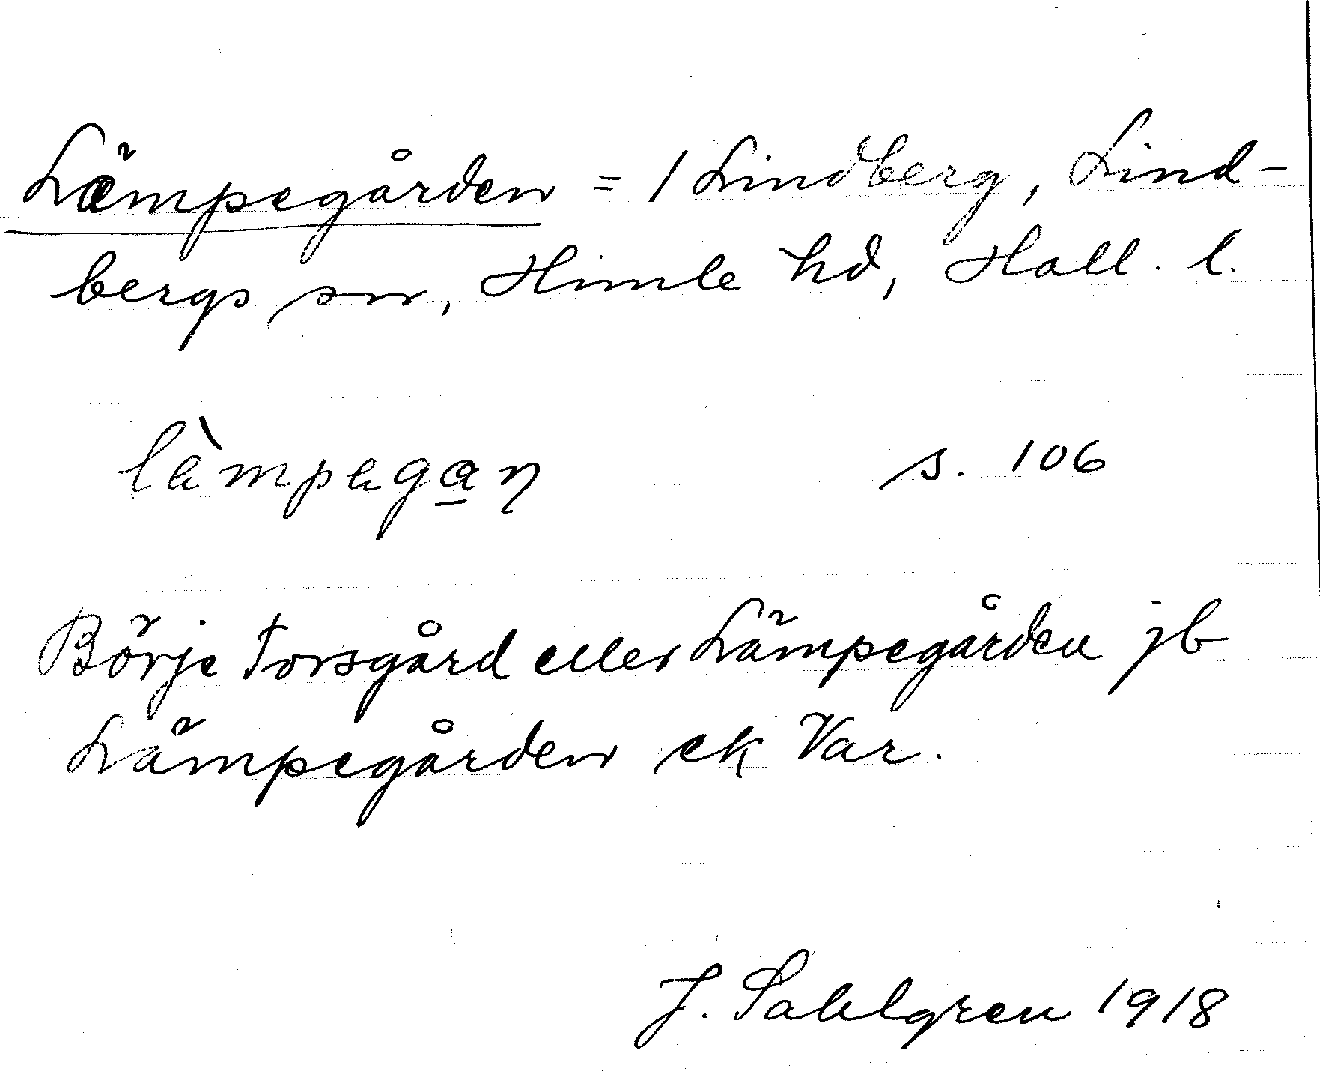 Lämpegården = 1 Lindberg, Lind-
bergs sn, Himle hd, Hall. l.
làmpagan s. 106
Börje Torsgård eller Lämpegården jb
Lämpegården ek Var.
J. Sahlgren 1918